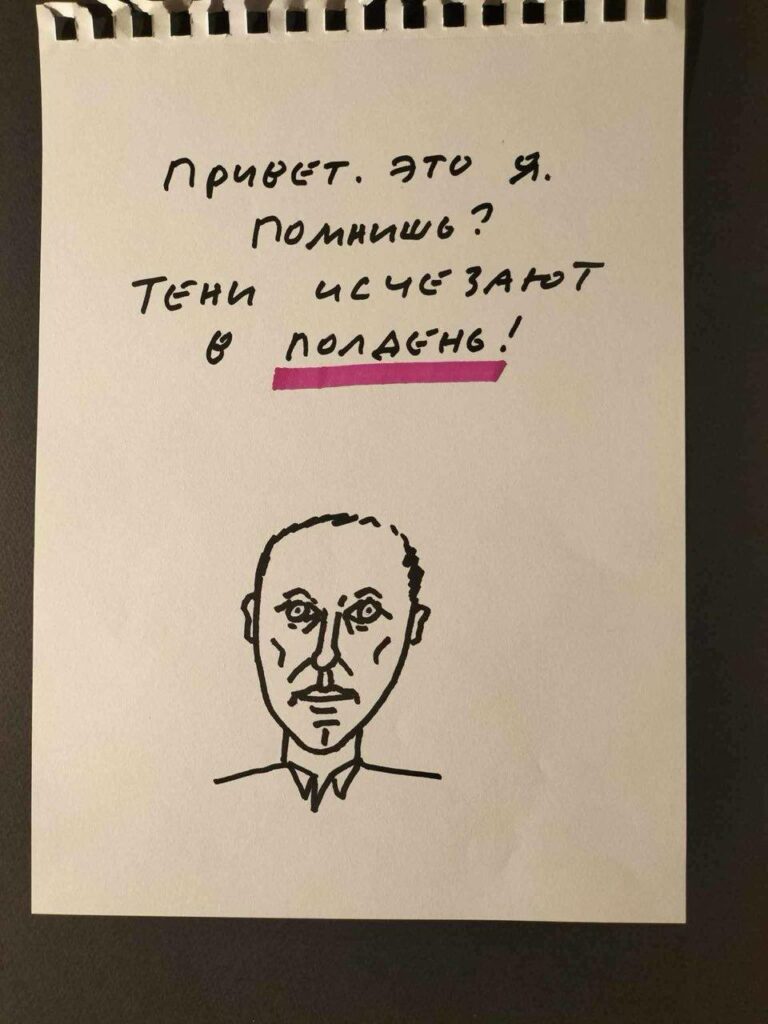 Привет. Это я.
Помнишь?
Тени исчезают
в полдень!